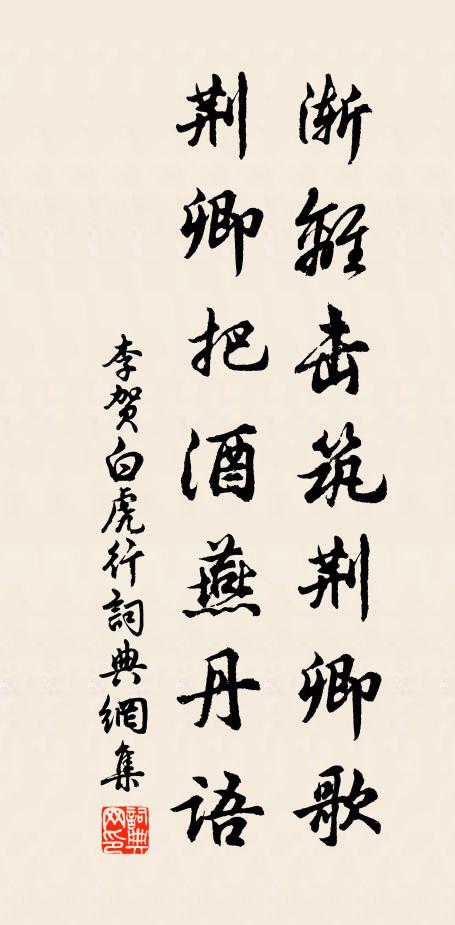 渐离击筑荆卿歌
荆卿把酒燕丹语
李贺白虎行詞典網集
詞典
网印